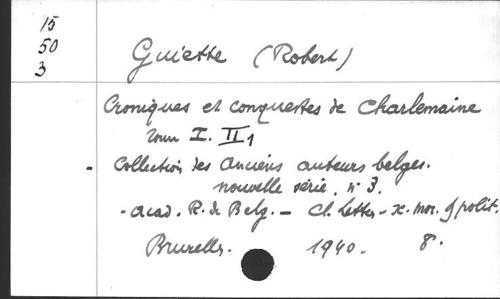 15
50
3
Guiette (Robert)
Croniques et conquestes de Charlemaine
Tome I. II 1
- Collection des Anciens auteurs belges.
nouvelle série. n° 3.
- Acad. R. de Belg. - Cl. Lettr. - sc. mor. & polit.
Bruxelles. 1940. 8°.